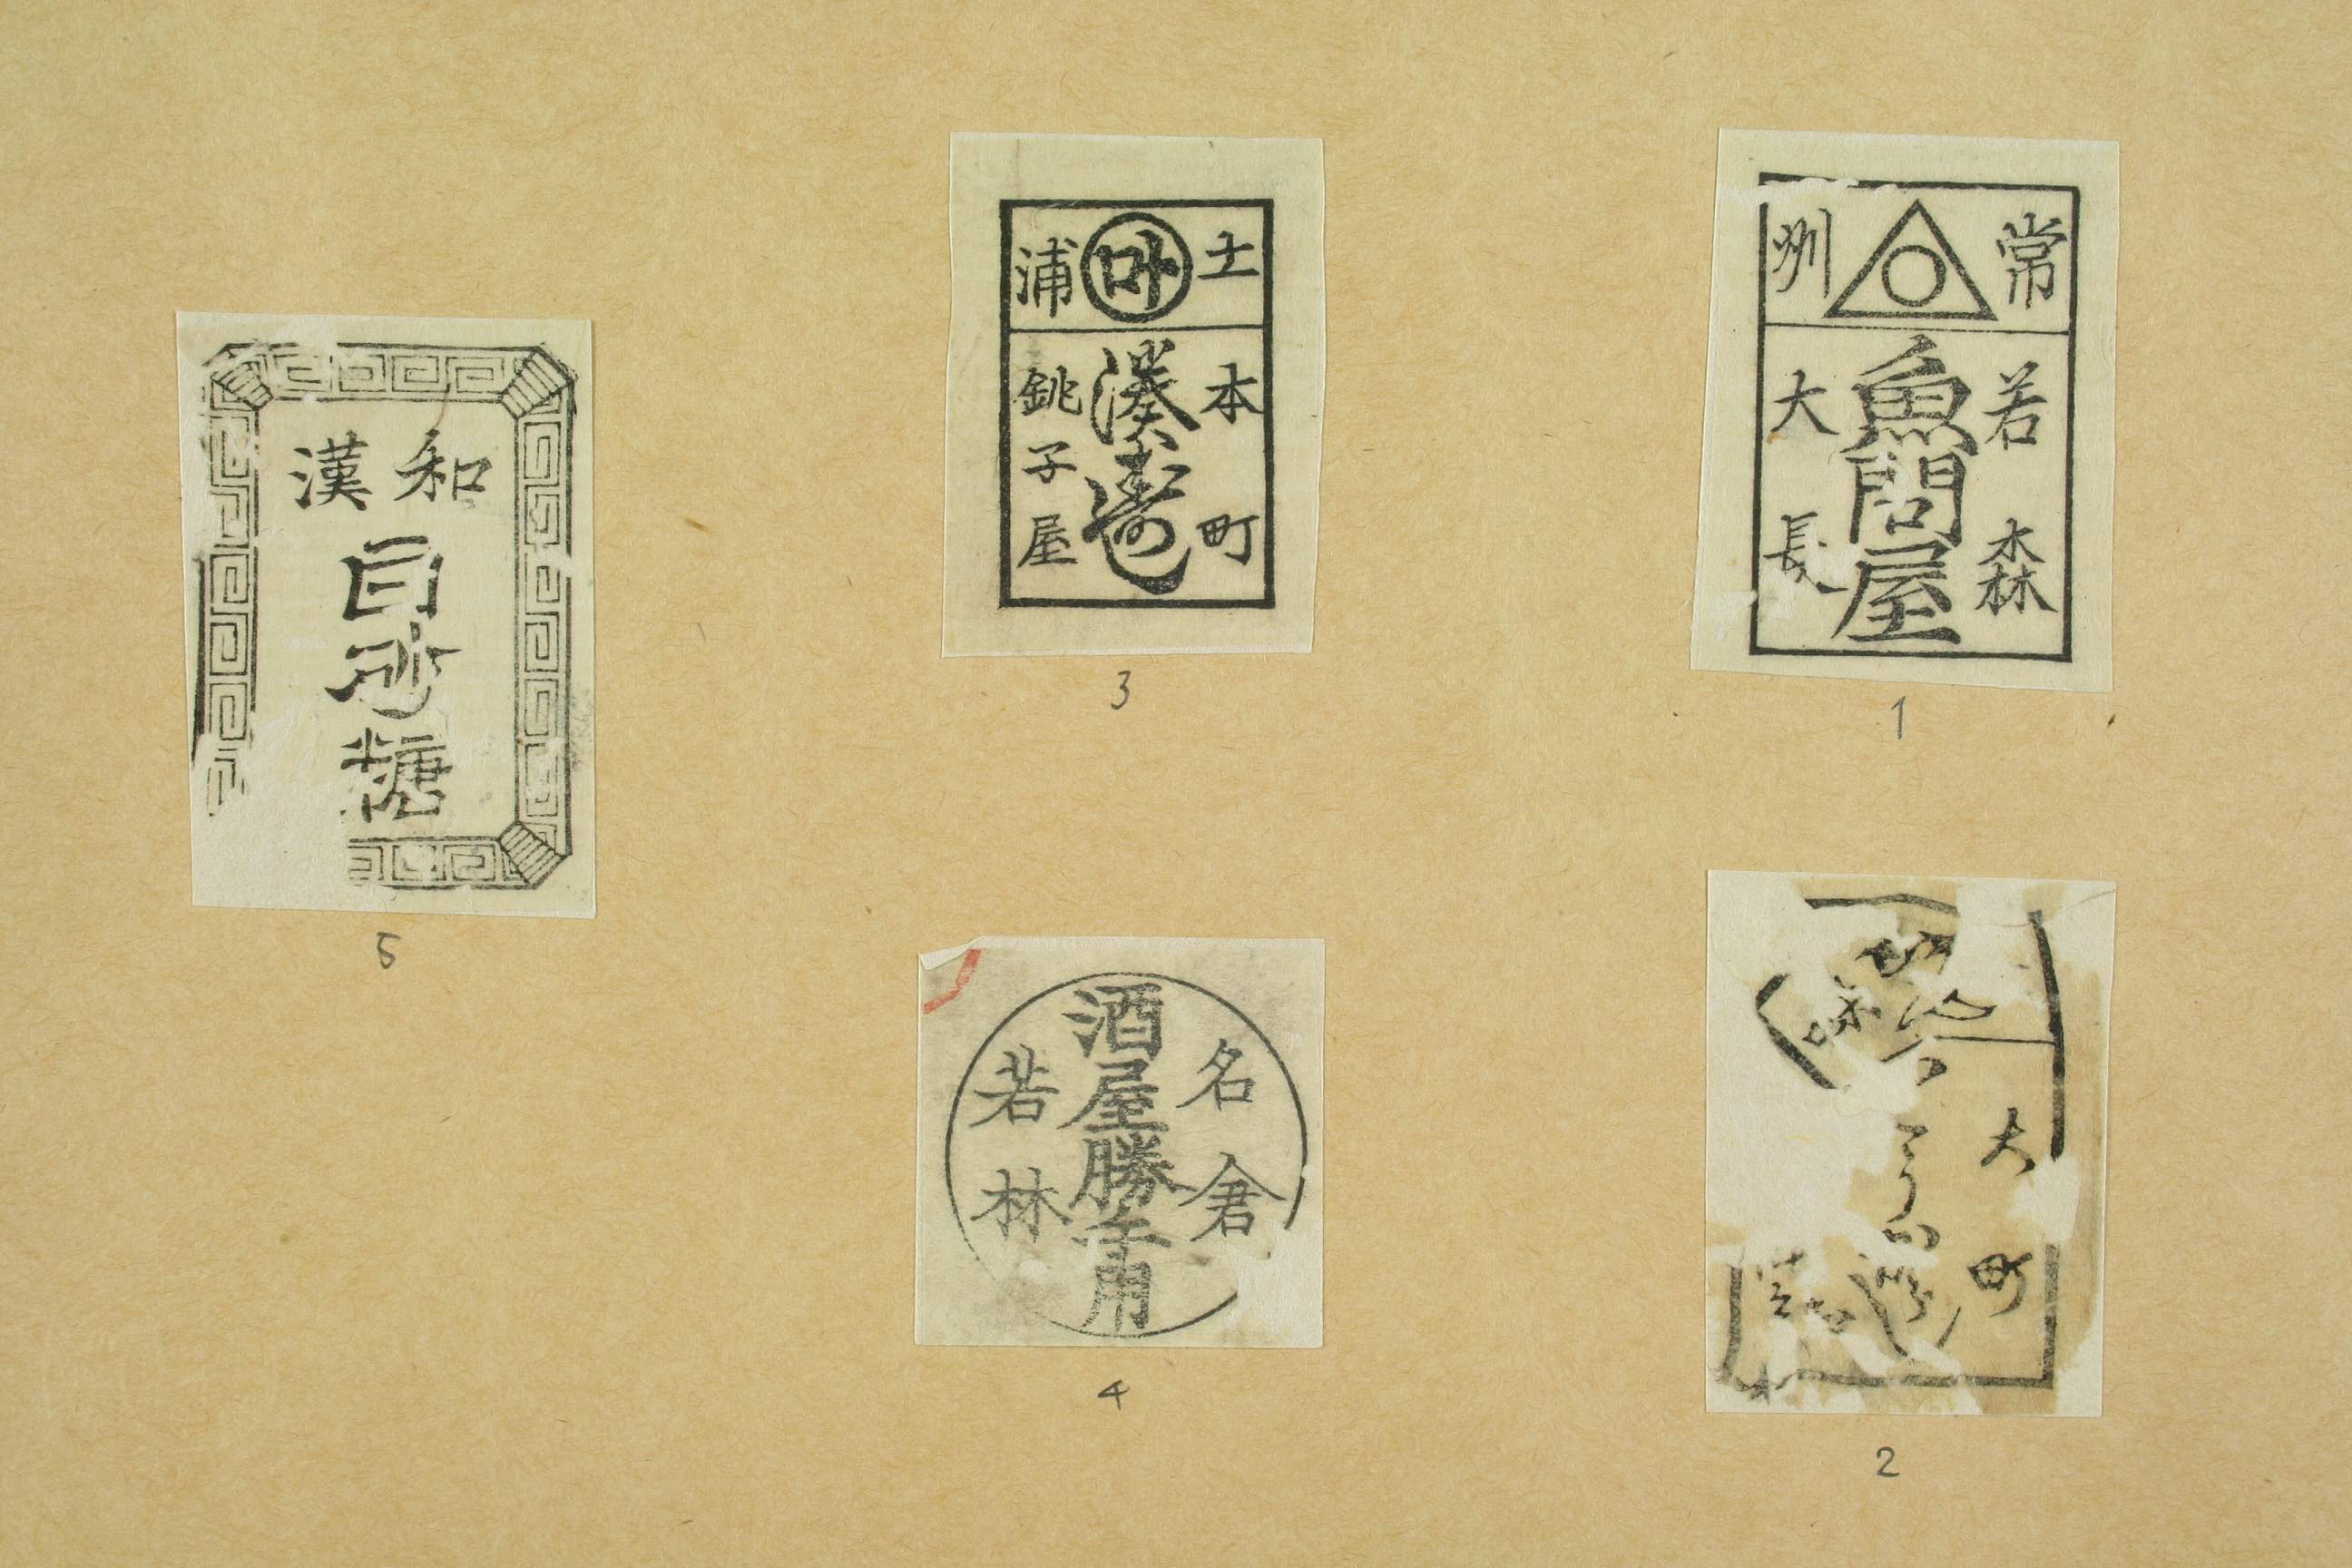 常州
若森
魚問屋
大長
1
大町
2
土浦
本町
湊壽
銚子屋
3
名倉
酒屋勝手用
若林
4
和漢
白砂糖
5